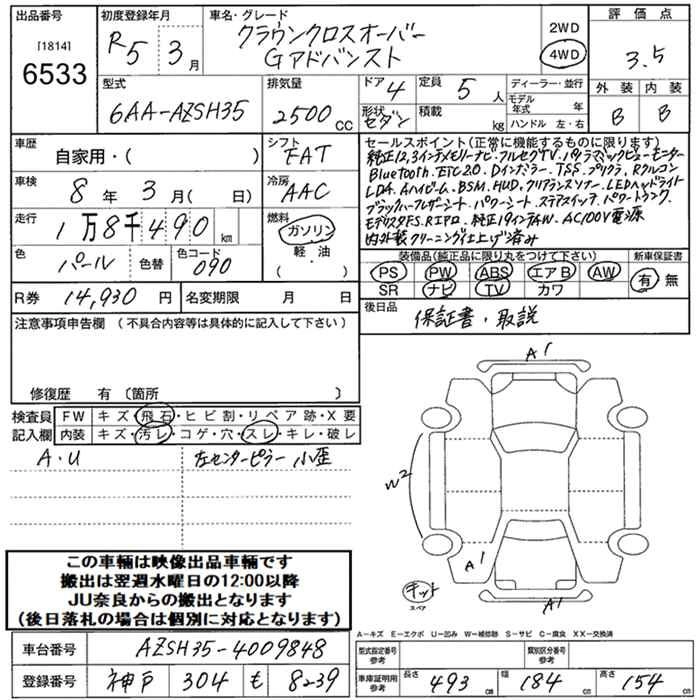 出品番号 初度登録年月 車名・グレード 評価点
[1814] R5 3月 クラウンクロスオーバー 2WD
6533 Gアドバンスト 4WD 3.5
型式 排気量 ドア 4 定員 5人 ディーラー・並行 外装 内装
6AA-AZSH35 2500cc 形状 セダン 積載 kg モデル年式 年 B B
ハンドル 左・右
車歴 シフト セールスポイント(正常に機能するものに限ります)
自家用・( ) FAT 純正12,3インチメモリーナビ・フルセグTV・パノラミックビューモニター
車検 冷房 Bluetooth・ETC2.0・Dインナミラー・TSS・プリクラ・Rクルコン
8年 3月( 日) AAC LDA・Aハイビーム・BSM・HUD・クリアランスソナー・LEDヘッドライト
走行 燃料 ブラックハーフレザーシート・パワーシート・ステアスイッチ・パワートランク
1万8千490km ガソリン モデリスタFS・REアロ・純正19インチAW・AC100V電源
色 色替 色コード 軽・油 内外装クリーニング仕上げ済み
パール 090 ( )
装備品(純正品に限り丸をつけて下さい) 新車保証書
PS PW ABS エアB AW 有・無
SR ナビ TV カワ
R券 14,930円 名変期限 月 日 後日品
保証書・取説
注意事項申告欄 (不具合内容等は具体的に記入して下さい)
修復歴 有(箇所 )
検査員 FW キズ・飛石・ヒビ割・リペア跡・X要
記入欄 内装 キズ・汚レ・コゲ・穴・スレ・キレ・破レ
A・U 左センターピラー小歪
A1
W2
A1
キット
スペア
A1
この車輌は映像出品車輌です
搬出は翌週水曜日の12:00以降
JU奈良からの搬出となります
(後日落札の場合は個別に対応となります)
A-キズ E-エクボ U-凹み W-補修跡 S-サビ C-腐食 XX-交換済
車台番号 AZSH35-4009848 型式指定番号参考 類別区分番号参考
登録番号 神戸 304 も 8239 車庫証明用参考 長さ 493cm 幅 184cm 高さ 154cm